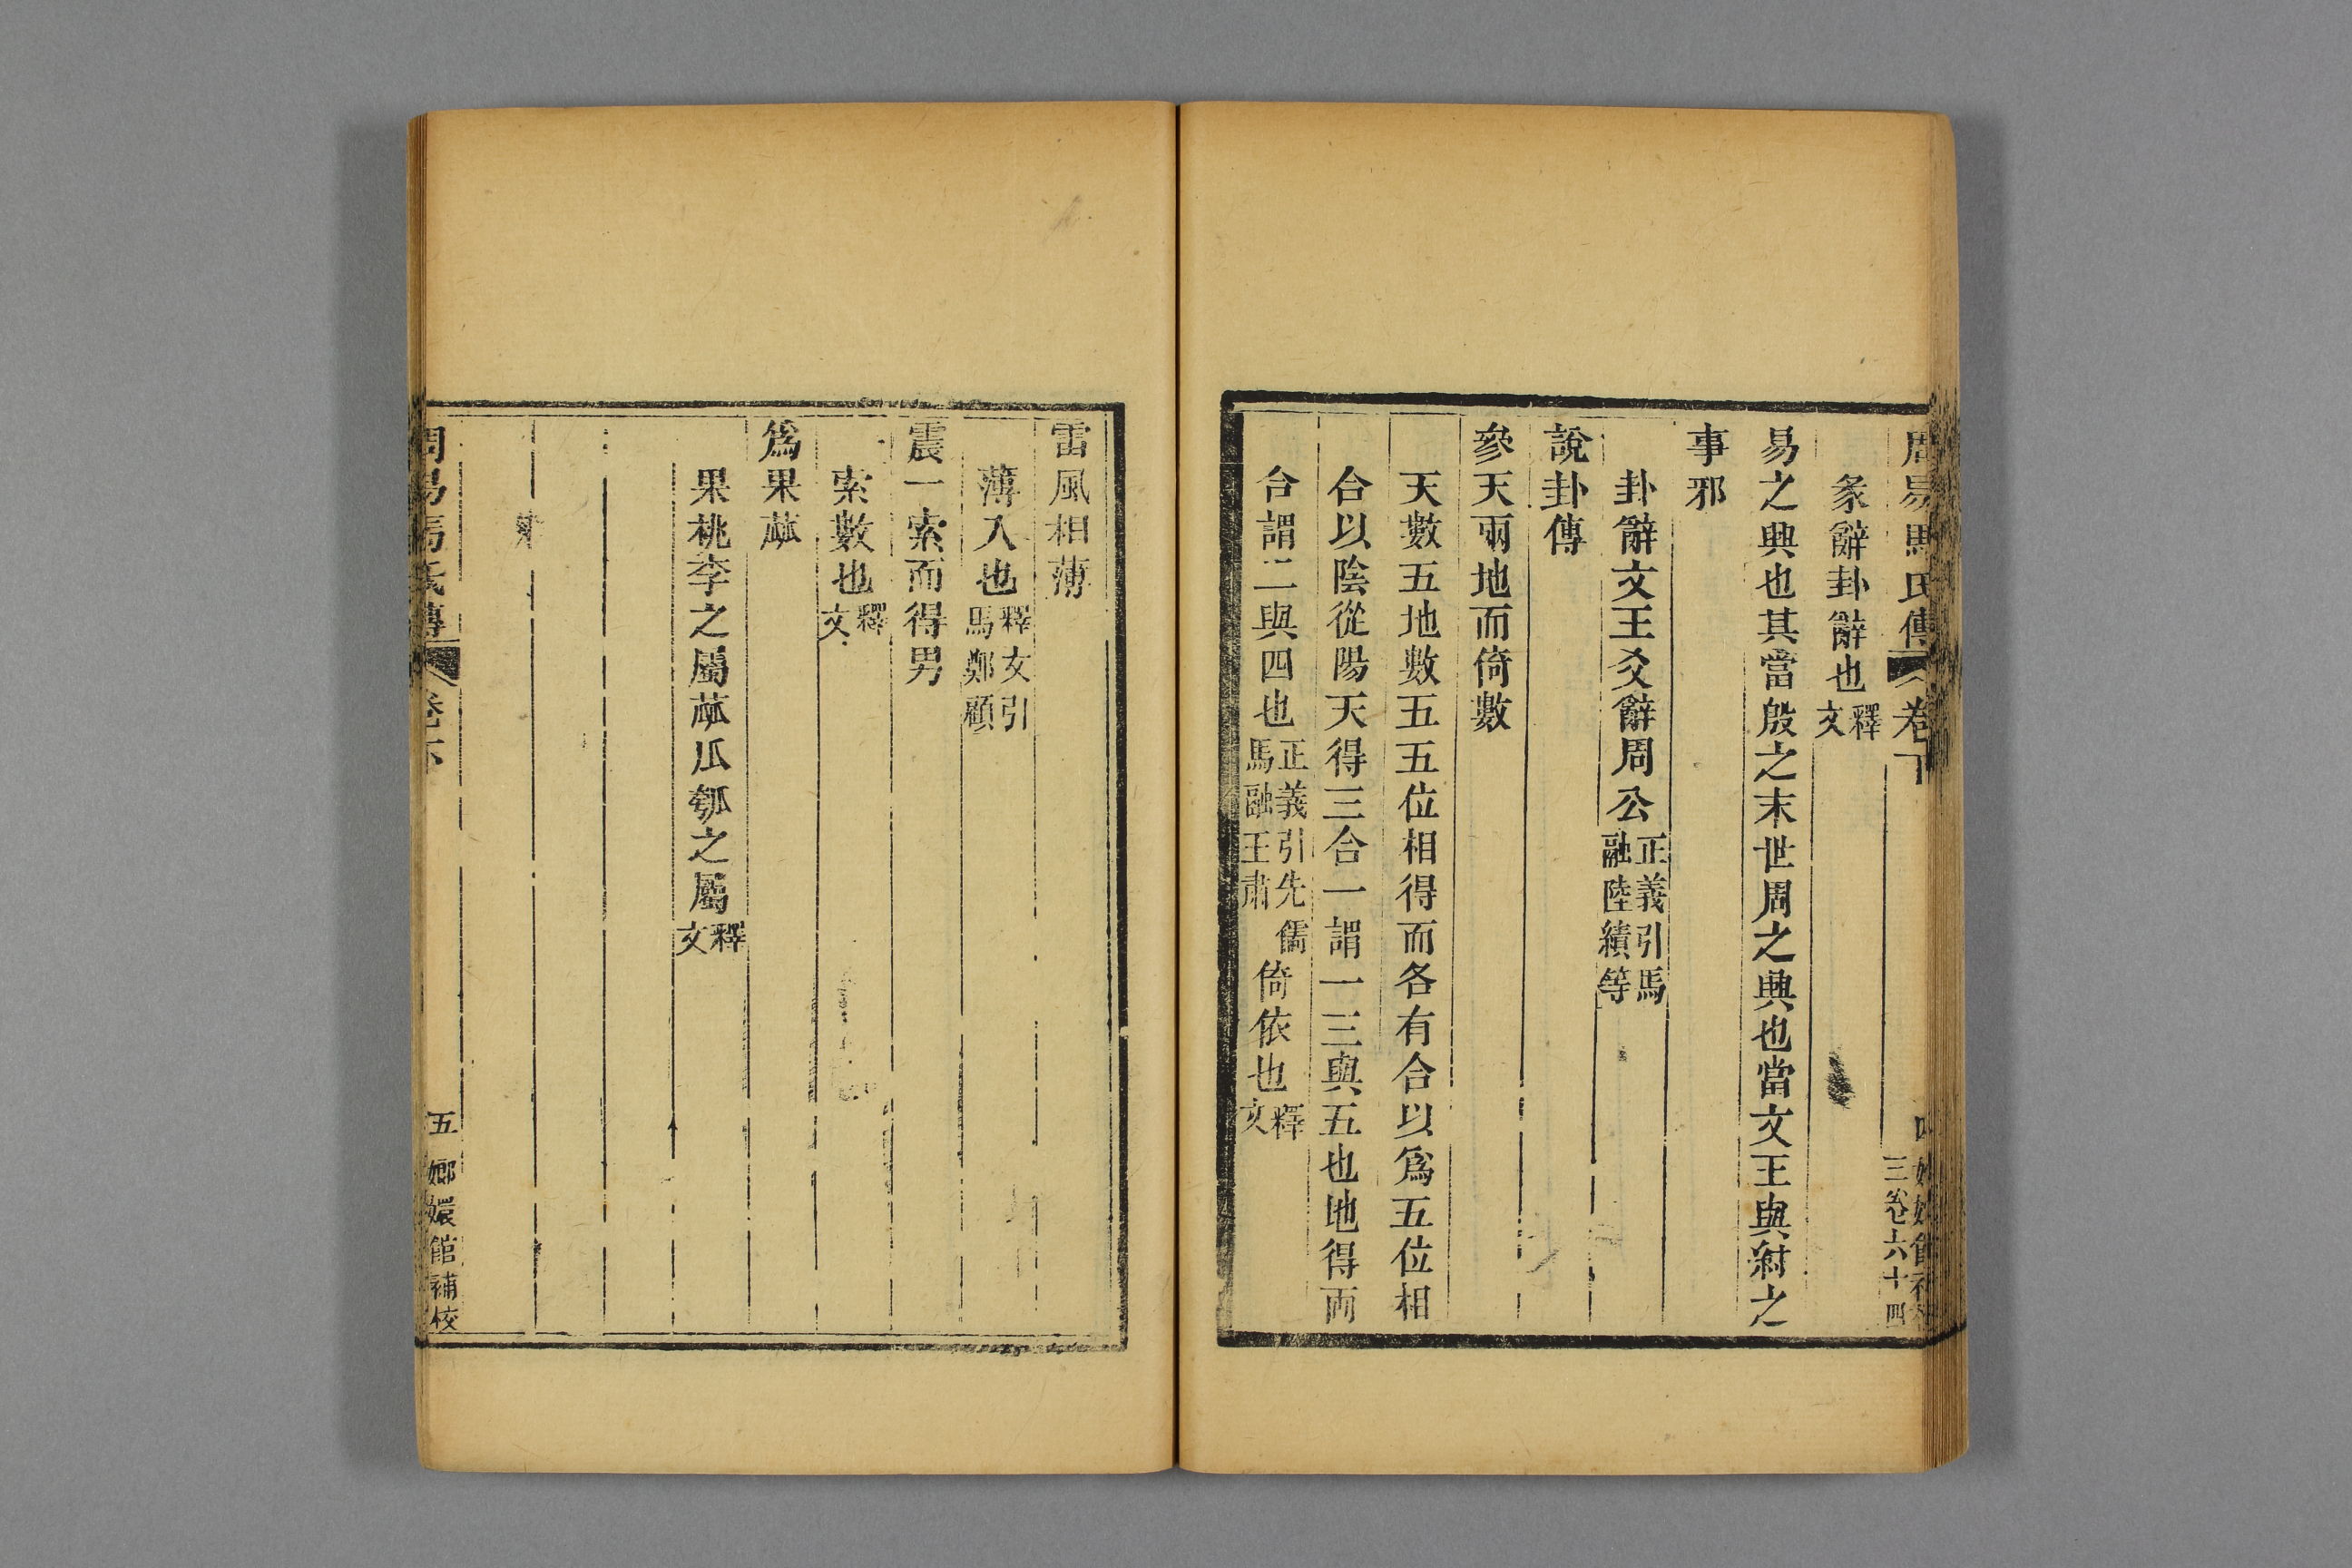 周易馬氏傳 卷下
三卷六十四
彖辭卦辭也釋文
易之興也其當殷之末世周之興也當文王與紂之
事邪
卦辭文王爻辭周公正義引馬融陸績等
說卦傳
參天兩地而倚數
天數五地數五五位相得而各有合以爲五位相
合以陰從陽天得三合一謂一三與五也地得兩
合謂二與四也正義引先儒馬融王肅倚依也釋文
雷風相薄
薄入也釋文引馬鄭顧
震一索而得男
索數也釋文
爲果蓏
果桃李之屬蓏瓜瓠之屬釋文
周易馬氏傳 卷下 五 嫏嬛館補校